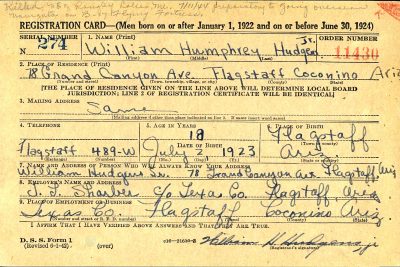 REGISTRATION CARD—(Men born on or after January 1, 1922 and on or before June 30, 1924)
SERIAL NUMBER 1. NAME (Print) ORDER NUMBER
N 274 William Humphrey Hudgens Jr. 11430
(First) (Middle) (Last)
2. PLACE OF RESIDENCE (Print)
78 Grand Canyon Ave. Flagstaff Coconino Ariz
(Number and street) (Town, township, village, or city) (County) (State)
[THE PLACE OF RESIDENCE GIVEN ON THE LINE ABOVE WILL DETERMINE LOCAL BOARD
JURISDICTION; LINE 2 OF REGISTRATION CERTIFICATE WILL BE IDENTICAL]
3. MAILING ADDRESS
Same
(Mailing address if other than place indicated on line 2. If same insert word same)
4. TELEPHONE 5. AGE IN YEARS 6. PLACE OF BIRTH
18 Flagstaff
DATE OF BIRTH
Flagstaff 489-W July 2 1923 Ariz
(Exchange) (Number) (Mo.) (Day) (Yr.) (State or country)
7. NAME AND ADDRESS OF PERSON WHO WILL ALWAYS KNOW YOUR ADDRESS
William Hudgens Sr. 78 Grand Canyon Ave Flagstaff Ariz
8. EMPLOYER'S NAME AND ADDRESS
c/o Texas Co. Flagstaff Ariz.
9. PLACE OF EMPLOYMENT OR BUSINESS
Texas Co. Flagstaff Coconino Ariz.
(Number and street or R. F. D. number) (Town) (County) (State)
I AFFIRM THAT I HAVE VERIFIED ABOVE ANSWERS AND THAT THEY ARE TRUE.
D. S. S. Form 1
(Revised 6-1-42) (over) William H. Hudgens Jr